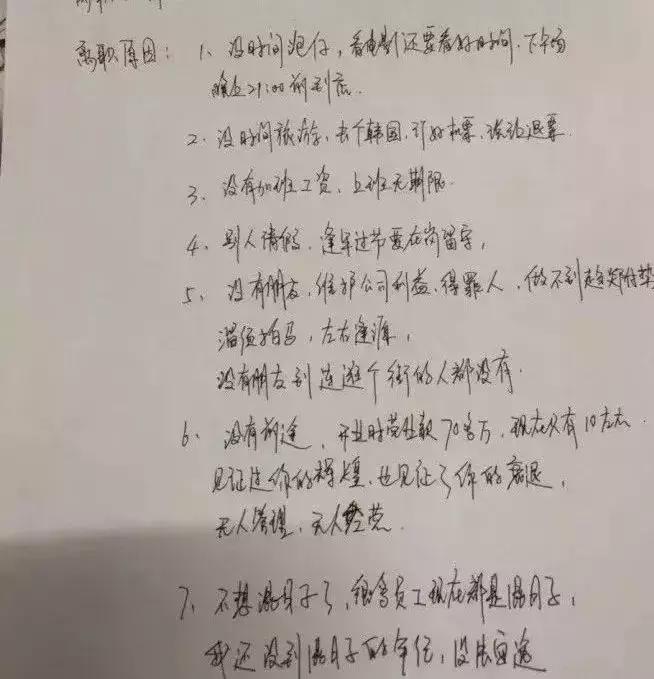 离职原因：1、没时间泡仔，看电影还要看好时间，下午场
难赶21:00前到店.
2、没时间旅游，去个韩国，订好机票，该说退票.
3、没有加班工资，上班无期限.
4、别人请假，逢年过节要在岗留守，
5、没有朋友，维护公司利益，得罪人，做不到趋炎附势
溜须拍马，左右逢源，
没有朋友到连逛个街的人都没有.
6、没有前途，开业时营业额70多万，现在只有10左右
见证过你的辉煌，也见证了你的衰退，
无人管理，无人经营.
7、不想混日子了，很多员工现在都是混日子，
我还没到混日子的年纪，没法面逸